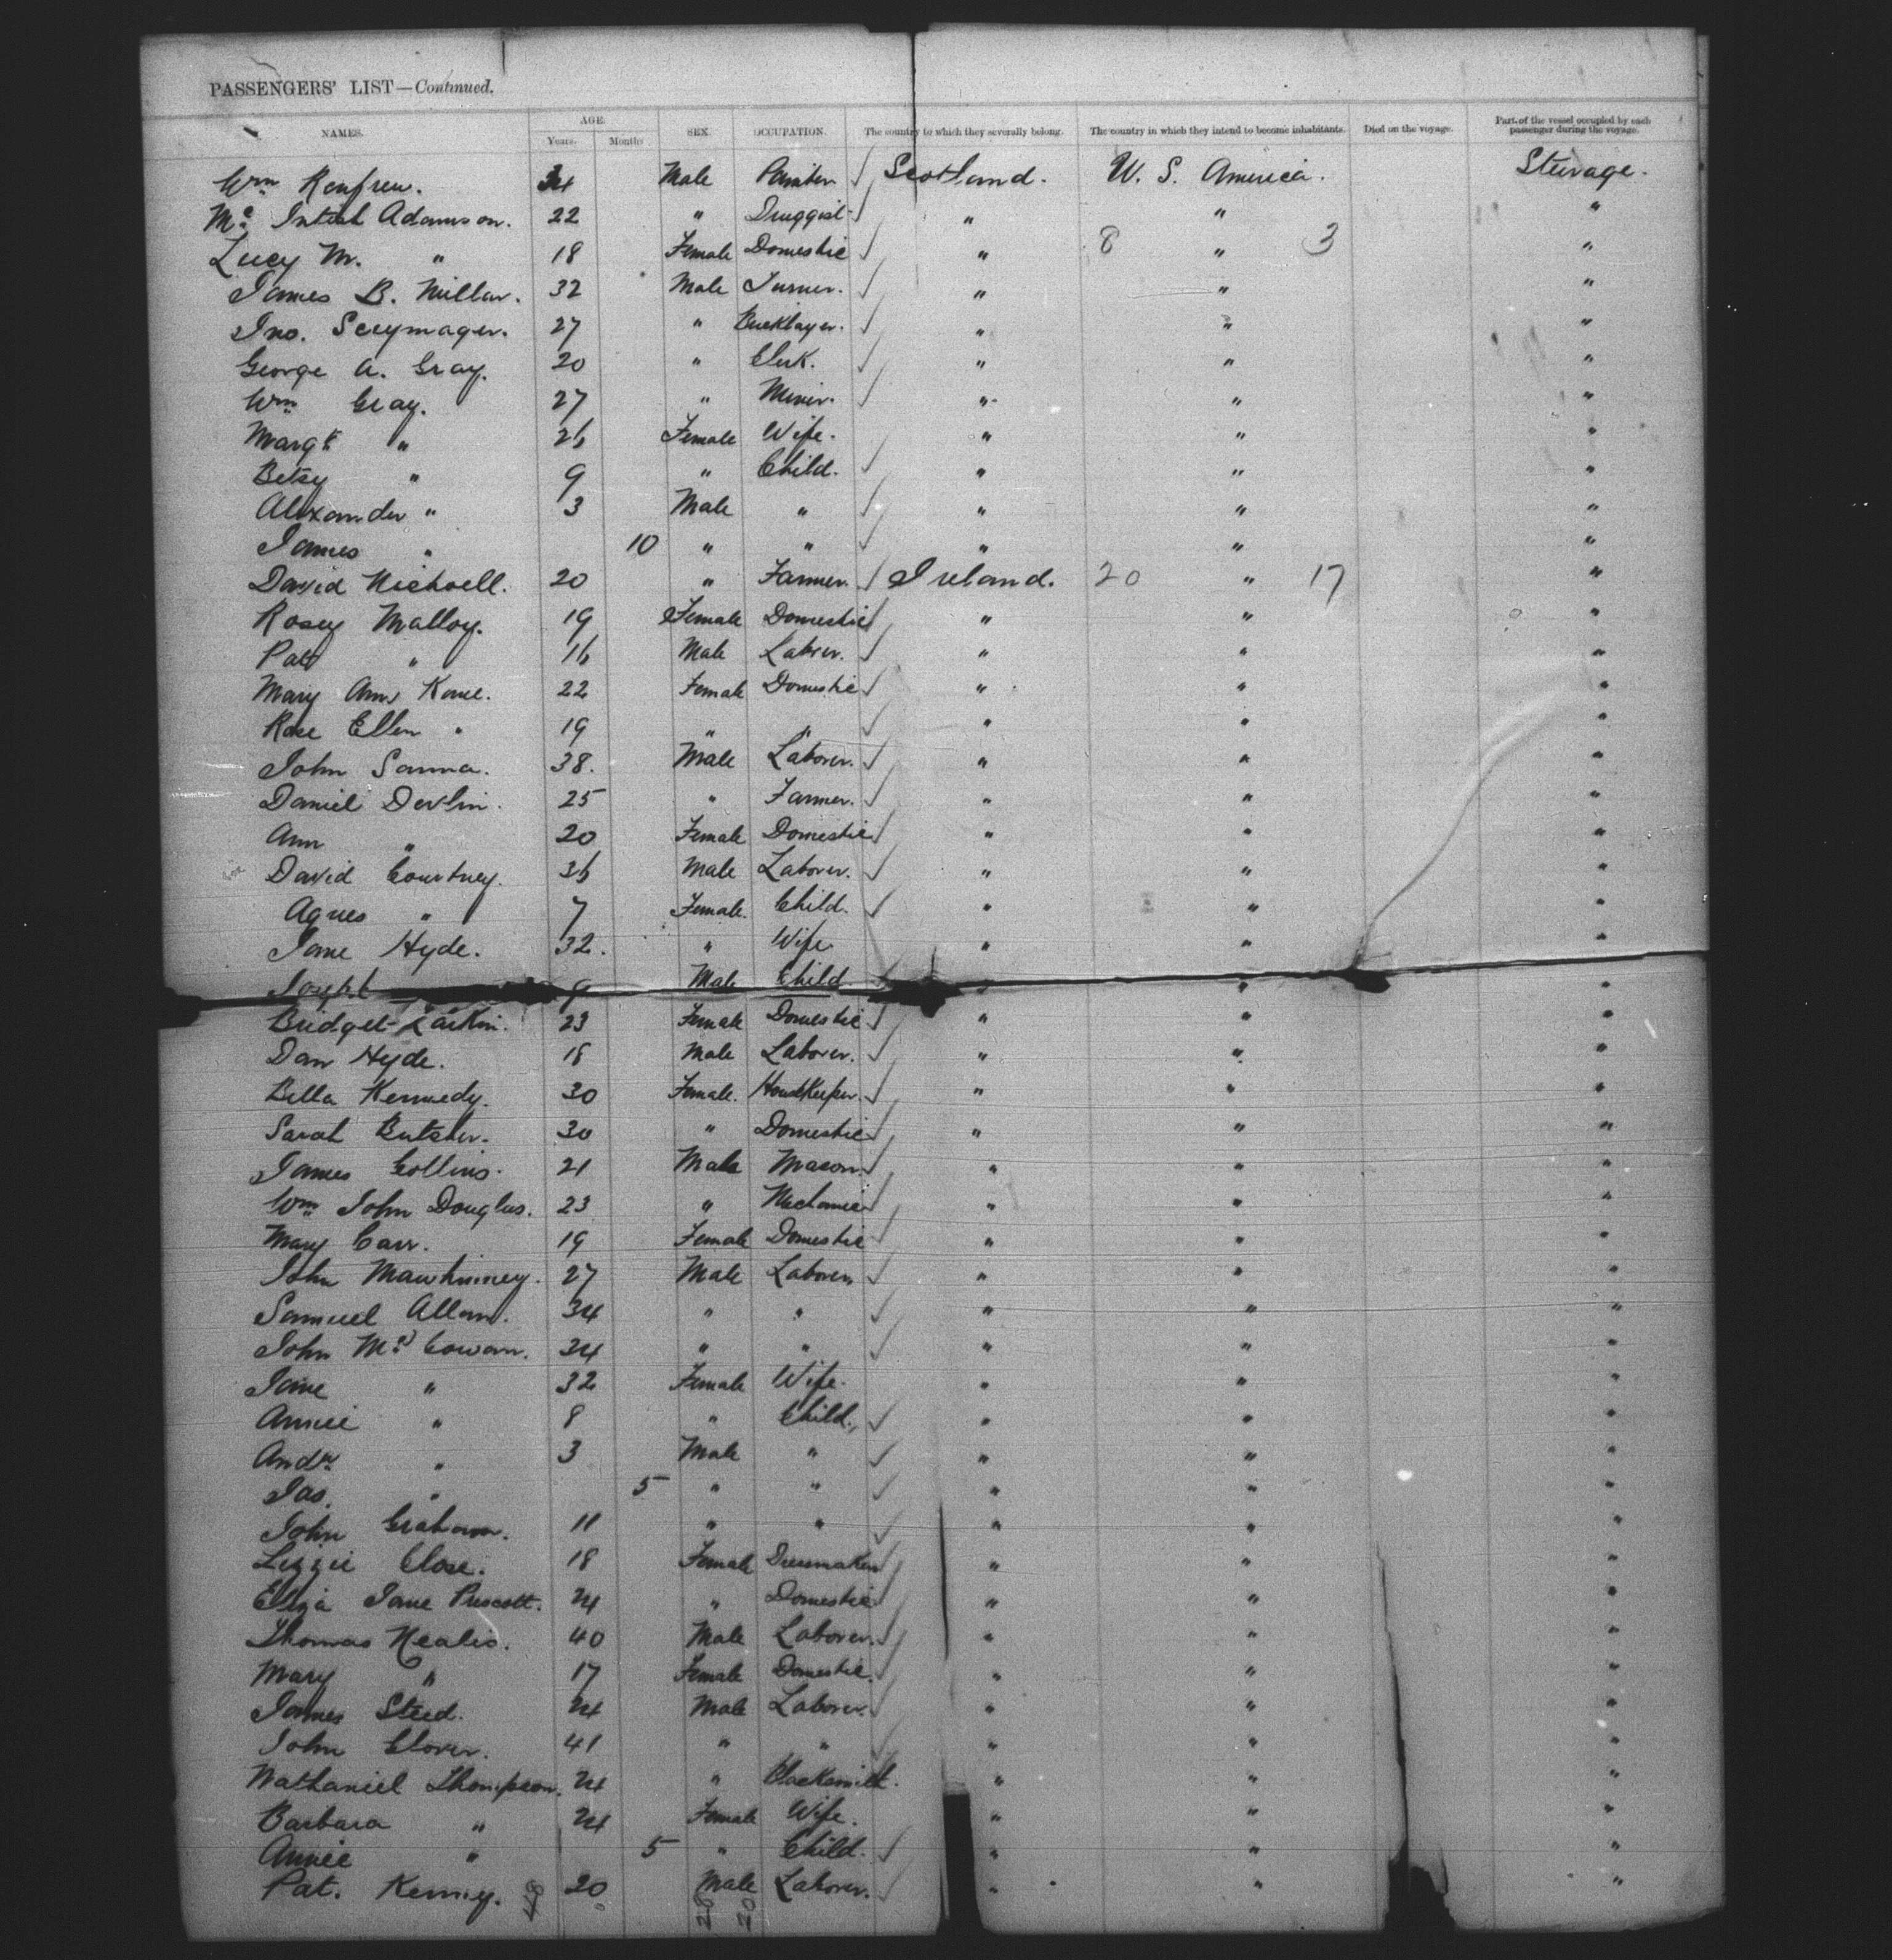 PASSENGERS' LIST—Continued.
NAMES. AGE. Years. Months SEX. OCCUPATION. The country to which they severally belong. The country in which they intend to become inhabitants. Died on the voyage. Part of the vessel occupied by each passenger during the voyage.
Wm Renfrew. 34 Male Painter Scotland. U. S. America. Steerage.
Mc Intosh Adamson. 22 " Druggist " " "
Lucy M. " 18 Female Domestic " 8 " 3 "
James B. Millar. 32 Male Turner. " " "
Jno. Scrymager. 27 " Bricklayer. " " "
George A. Gray. 20 " Clerk. " " "
Wm Gray. 27 " Miner. " " "
Margt " 26 Female Wife. " " "
Betsy " 9 " Child. " " "
Alexander " 3 Male " " " "
James " 10 " " " " "
David Nicholl. 20 " Farmer. Ireland. 20 " 17 "
Rosey Malloy. 19 Female Domestic " " "
Pat " 16 Male Labrer. " " "
Mary Ann Kane. 22 Female Domestic " " "
Rose Ellen " 19 " " " " "
John Sanna. 38. Male Laborer. " " "
Daniel Devlin. 25 " Farmer. " " "
Ann " 20 Female Domestic " " "
David Courtney. 36 Male Laborer. " " "
Agnes " 7 Female. Child. " " "
Jane Hyde. 32. " Wife. " " "
Joseph 9 Male Child " " "
Bridget Larkin. 23 Female Domestic " " "
Dan Hyde. 18 Male Laborer. " " "
Bella Kennedy. 30 Female. Housekeeper. " " "
Sarah Butcher. 30 " Domestic " " "
James Collins. 21 Male Mason. " " "
Wm John Douglas. 23 " Mechanic " " "
Mary Carr. 19 Female Domestic " " "
John Mawhinney. 27 Male Laborer " " "
Samuel Allan. 34 " " " " "
John Mc Cowan. 34 " " " " "
Jane " 32 Female Wife. " " "
Annie " 8 " Child. " " "
Andw " 3 Male " " " "
Jas. " 5 " " " " "
John Graham. 11 " " " " "
Lizzie Close. 18 Female Dressmaker " " "
Eliza Jane Prescott. 24 " Domestic " " "
Thomas Nealis. 40 Male Laborer. " " "
Mary " 17 Female Domestic. " " "
James Steed. 24 Male Laborer. " " "
John Glover. 41 " " " " "
Nathaniel Thompson. 24 " Blacksmith. " " "
Barbara " 24 Female Wife. " " "
Annie " 5 " Child. " " "
Pat. Kenny. 20 Male Laborer. " " "
48 28 20